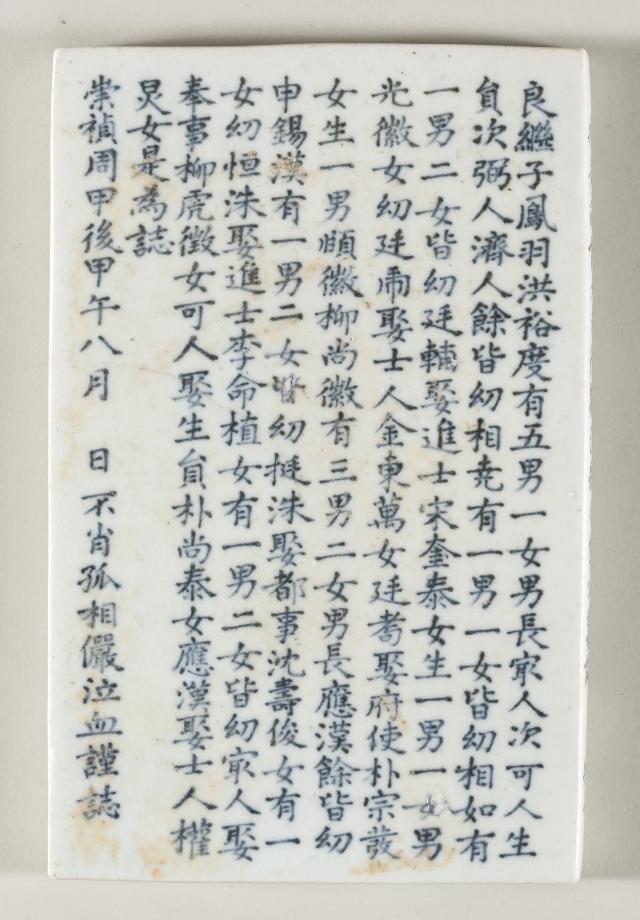 良繼子鳳羽洪裕度有五男一女男長㝡人次可人生
員次弼人濟人餘皆幼相堯有一男一女皆幼相如有
一男二女皆幼廷輔娶進士宋奎泰女生一男一女男
光徽女幼廷鼐娶士人金東萬女廷耉娶府使朴宗發
女生一男頤徽柳尚徽有三男二女男長應漢餘皆幼
申錫漢有一男二女皆幼挺洙娶都事沈壽俊女有一
女幼恒洙娶進士李命植女有一男二女皆幼㝡人娶
奉事柳虎徵女可人娶生員朴尚泰女應漢娶士人權
炅女是為誌
崇禎周甲後甲午八月 日不肖孤相儼泣血謹誌